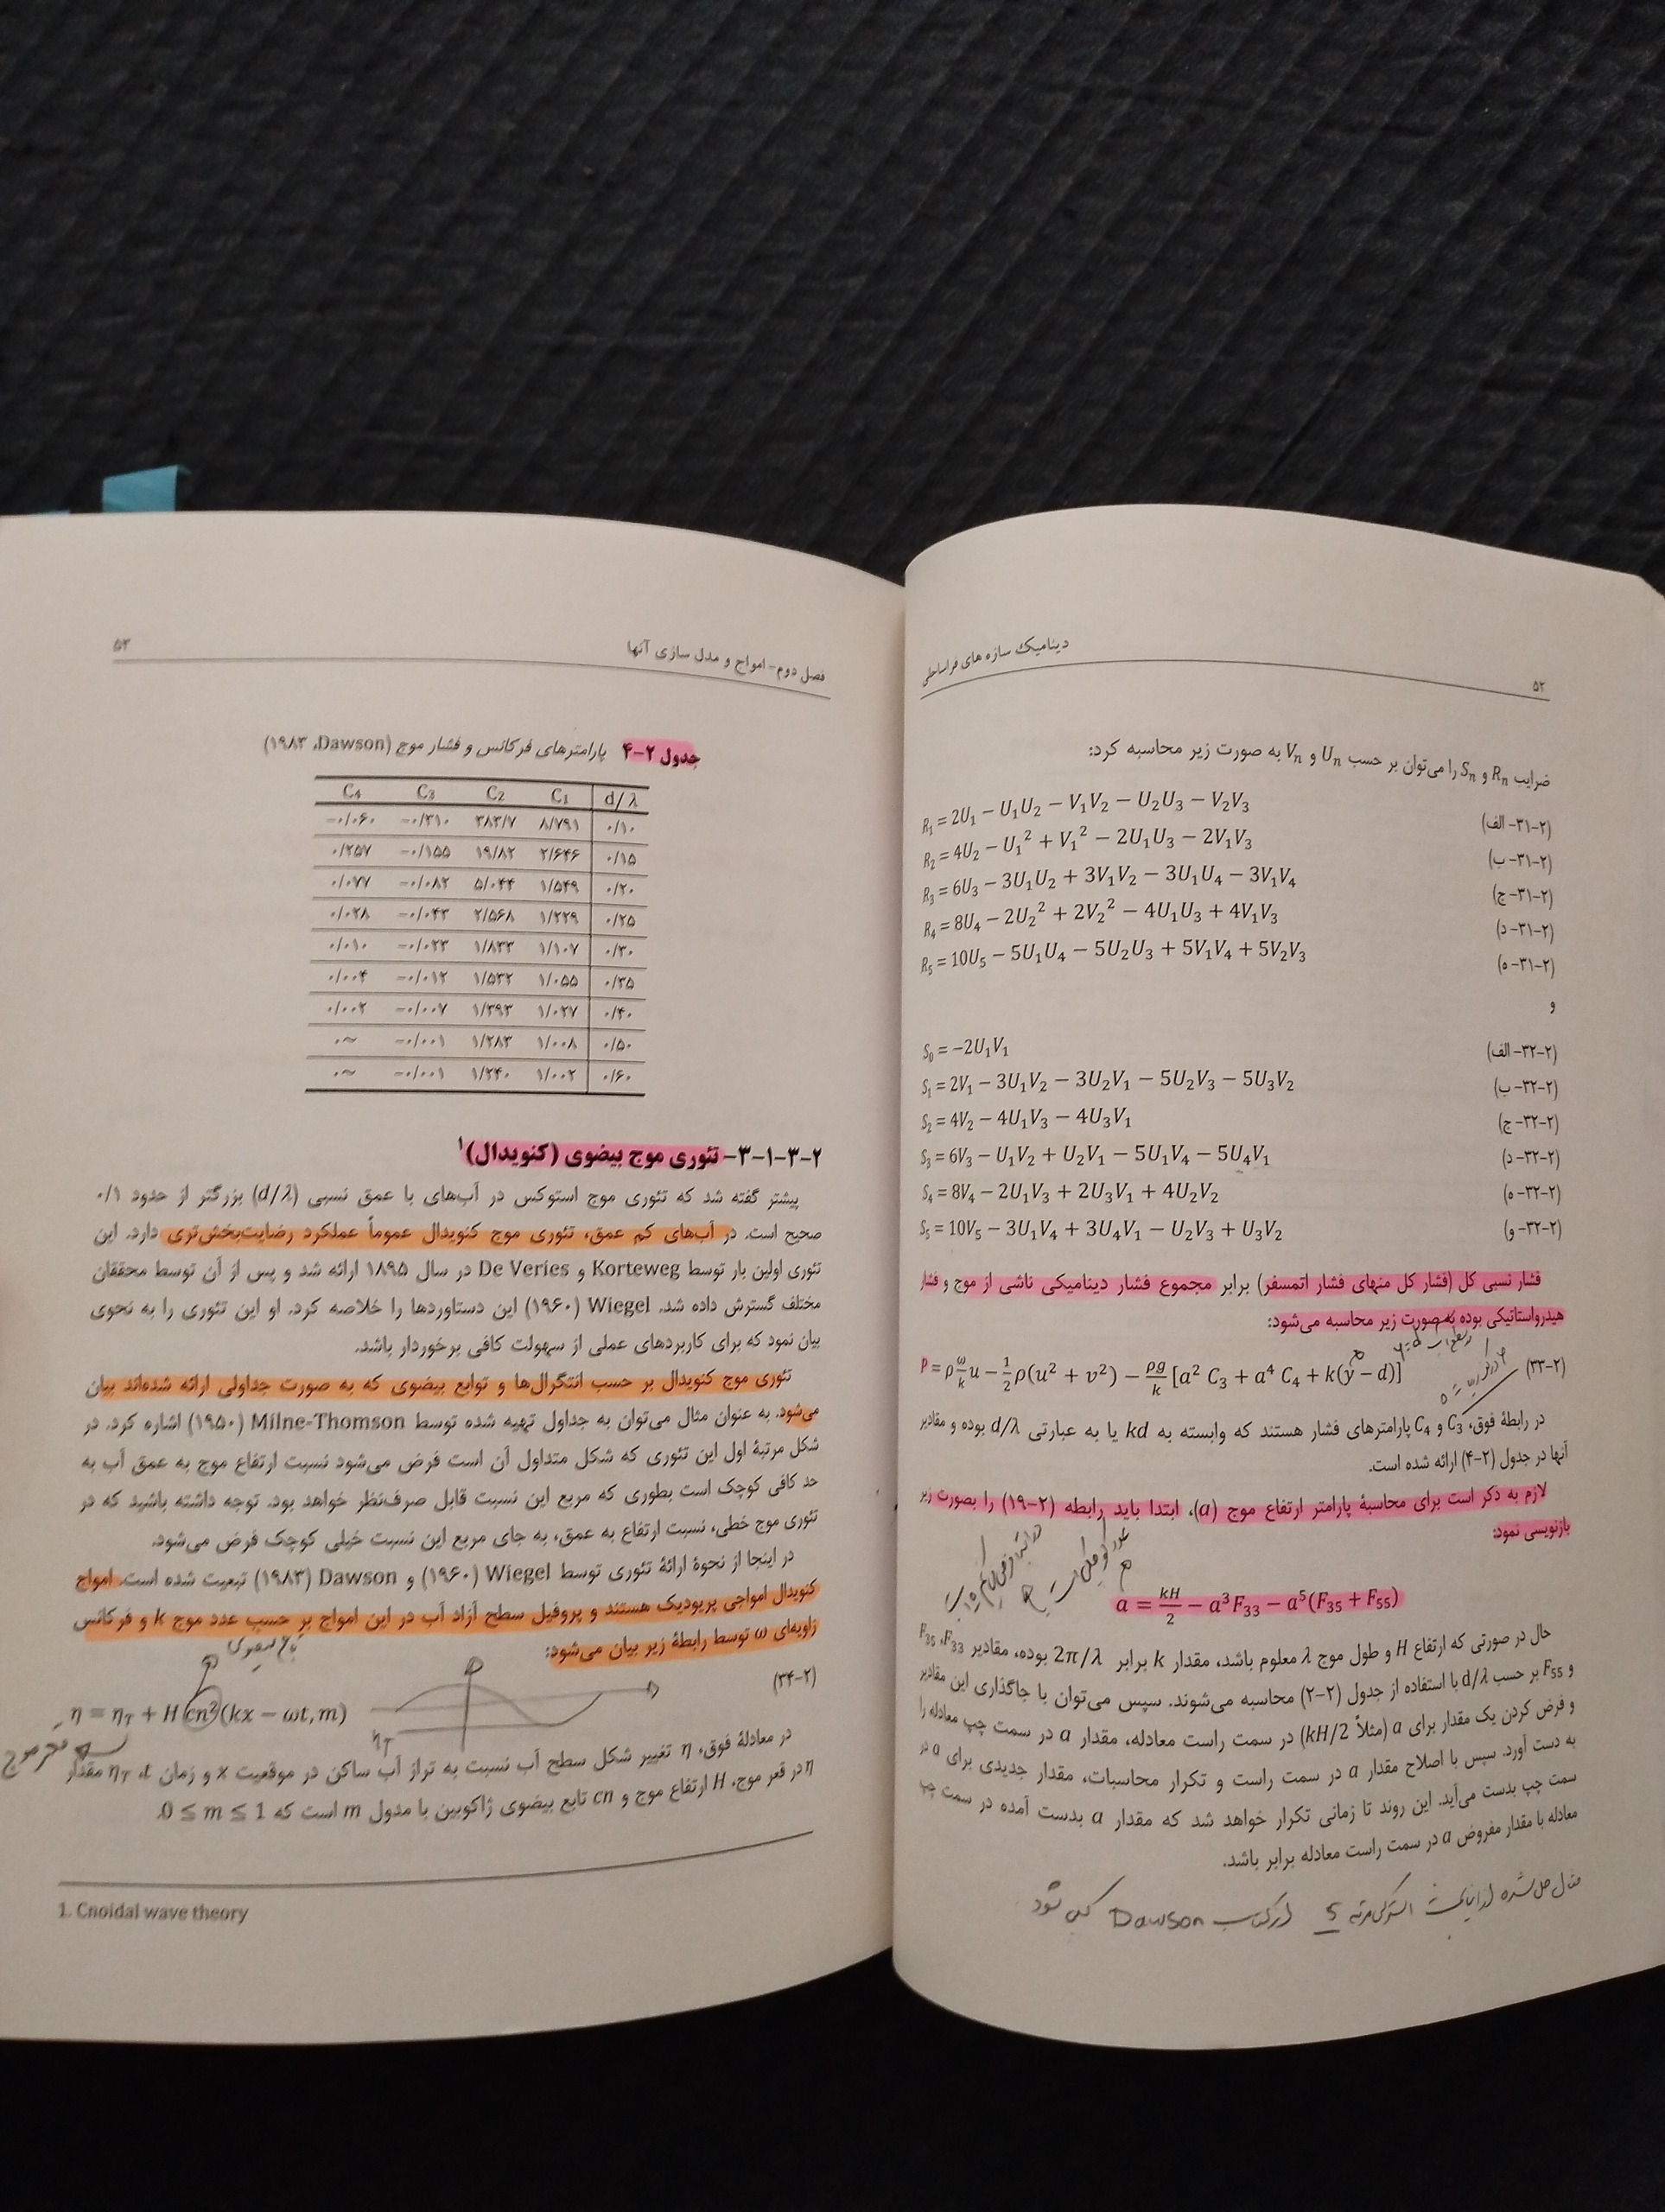 دینامیک سازه های فراساحلی
۵۲
ضرایب Rn و Sn را می‌توان بر حسب Un و Vn به صورت زیر محاسبه کرد:
R₁ = 2U₁ − U₁U₂ − V₁V₂ − U₂U₃ − V₂V₃ (۲-۳۱- الف)
R₂ = 4U₂ − U₁² + V₁² − 2U₁U₃ − 2V₁V₃ (۲-۳۱- ب)
R₃ = 6U₃ − 3U₁U₂ + 3V₁V₂ − 3U₁U₄ − 3V₁V₄ (۲-۳۱- ج)
R₄ = 8U₄ − 2U₂² + 2V₂² − 4U₁U₃ + 4V₁V₃ (۲-۳۱- د)
R₅ = 10U₅ − 5U₁U₄ − 5U₂U₃ + 5V₁V₄ + 5V₂V₃ (۲-۳۱- ه)
و
S₀ = −2U₁V₁ (۲-۳۲- الف)
S₁ = 2V₁ − 3U₁V₂ − 3U₂V₁ − 5U₂V₃ − 5U₃V₂ (۲-۳۲- ب)
S₂ = 4V₂ − 4U₁V₃ − 4U₃V₁ (۲-۳۲- ج)
S₃ = 6V₃ − U₁V₂ + U₂V₁ − 5U₁V₄ − 5U₄V₁ (۲-۳۲- د)
S₄ = 8V₄ − 2U₁V₃ + 2U₃V₁ + 4U₂V₂ (۲-۳۲- ه)
S₅ = 10V₅ − 3U₁V₄ + 3U₄V₁ − U₂V₃ + U₃V₂ (۲-۳۲- و)
فشار نسبی کل (فشار کل منهای فشار اتمسفر) برابر مجموع فشار دینامیکی ناشی از موج و فشار
هیدرواستاتیکی بوده به صورت زیر محاسبه می‌شود:
P = ρ ω/k u − 1/2 ρ(u² + v²) − ρg/k [a² C₃ + a⁴ C₄ + k(y − d)] (۲-۳۳)
در رابطهٔ فوق، C₃ و C₄ پارامترهای فشار هستند که وابسته به kd یا به عبارتی d/λ بوده و مقادیر
آنها در جدول (۲-۴) ارائه شده است.
لازم به ذکر است برای محاسبهٔ پارامتر ارتفاع موج (a)، ابتدا باید رابطه (۲-۱۹) را بصورت زیر
بازنویسی نمود:
a = kH/2 − a³F₃₃ − a⁵(F₃₅ + F₅₅)
حال در صورتی که ارتفاع H و طول موج λ معلوم باشد، مقدار k برابر 2π/λ بوده، مقادیر F₃₃، F₃₅
و F₅₅ بر حسب d/λ با استفاده از جدول (۲-۲) محاسبه می‌شوند. سپس می‌توان با جاگذاری این مقادیر
و فرض کردن یک مقدار برای a (مثلاً kH/2) در سمت راست معادله، مقدار a در سمت چپ معادله را
به دست آورد. سپس با اصلاح مقدار a در سمت راست و تکرار محاسبات، مقدار جدیدی برای a در
سمت چپ بدست می‌آید. این روند تا زمانی تکرار خواهد شد که مقدار a بدست آمده در سمت چپ
معادله با مقدار مفروض a در سمت راست معادله برابر باشد.
مثال حل شده استوکس مرتبه 5 از کتاب Dawson شود
فصل دوم- امواج و مدل سازی آنها
۵۳
جدول ۲-۴ پارامترهای فرکانس و فشار موج (Dawson، ۱۹۸۳)
d/λ C₁ C₂ C₃ C₄
۰/۱۰ ۸/۷۹۱ ۳۸۳/۷ −۰/۳۱۰ −۰/۰۶۰
۰/۱۵ ۲/۶۴۶ ۱۹/۸۲ −۰/۱۵۵ ۰/۲۵۷
۰/۲۰ ۱/۵۴۹ ۵/۰۴۴ −۰/۰۸۲ ۰/۰۷۷
۰/۲۵ ۱/۲۲۹ ۲/۵۶۸ −۰/۰۴۳ ۰/۰۲۸
۰/۳۰ ۱/۱۰۷ ۱/۸۳۳ −۰/۰۲۳ ۰/۰۱۰
۰/۳۵ ۱/۰۵۵ ۱/۵۳۲ −۰/۰۱۲ ۰/۰۰۴
۰/۴۰ ۱/۰۲۷ ۱/۳۹۳ −۰/۰۰۷ ۰/۰۰۲
۰/۵۰ ۱/۰۰۸ ۱/۲۸۳ −۰/۰۰۱ ~۰
۰/۶۰ ۱/۰۰۲ ۱/۲۴۰ −۰/۰۰۱ ~۰
۲-۳-۱-۳- تئوری موج بیضوی (کنویدال)۱
پیشتر گفته شد که تئوری موج استوکس در آب‌های با عمق نسبی (d/λ) بزرگتر از حدود ۰/۱
صحیح است. در آب‌های کم عمق، تئوری موج کنویدال عموماً عملکرد رضایت‌بخش‌تری دارد. این
تئوری اولین بار توسط Korteweg و De Veries در سال ۱۸۹۵ ارائه شد و پس از آن توسط محققان
مختلف گسترش داده شد. Wiegel (۱۹۶۰) این دستاوردها را خلاصه کرد. او این تئوری را به نحوی
بیان نمود که برای کاربردهای عملی از سهولت کافی برخوردار باشد.
تئوری موج کنویدال بر حسب انتگرال‌ها و توابع بیضوی که به صورت جداولی ارائه شده‌اند بیان
می‌شود. به عنوان مثال می‌توان به جداول تهیه شده توسط Milne-Thomson (۱۹۵۰) اشاره کرد. در
شکل مرتبهٔ اول این تئوری که شکل متداول آن است فرض می‌شود نسبت ارتفاع موج به عمق آب به
حد کافی کوچک است بطوری که مربع این نسبت قابل صرف‌نظر خواهد بود. توجه داشته باشید که در
تئوری موج خطی، نسبت ارتفاع به عمق، به جای مربع این نسبت خیلی کوچک فرض می‌شود.
در اینجا از نحوهٔ ارائهٔ تئوری توسط Wiegel (۱۹۶۰) و Dawson (۱۹۸۳) تبعیت شده است. امواج
کنویدال امواجی پریودیک هستند و پروفیل سطح آزاد آب در این امواج بر حسب عدد موج k و فرکانس
زاویه‌ای ω توسط رابطهٔ زیر بیان می‌شود:
تابع بیضوی
η = η_T + H cn²(kx − ωt, m) (۲-۳۴)
η_T
قعر موج
در معادلهٔ فوق، η تغییر شکل سطح آب نسبت به تراز آب ساکن در موقعیت x و زمان t، η_T مقدار
η در قعر موج، H ارتفاع موج و cn تابع بیضوی ژاکوبین با مدول m است که 0 ≤ m ≤ 1.
1. Cnoidal wave theory